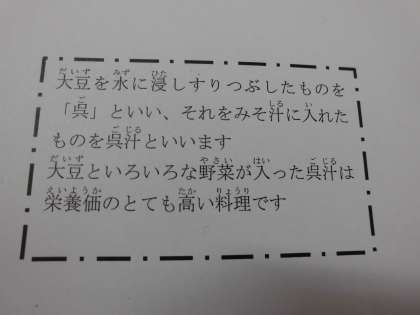 大豆を水に浸しすりつぶしたものを
「呉」といい、それをみそ汁に入れた
ものを呉汁といいます
大豆といろいろな野菜が入った呉汁は
栄養価のとても高い料理です